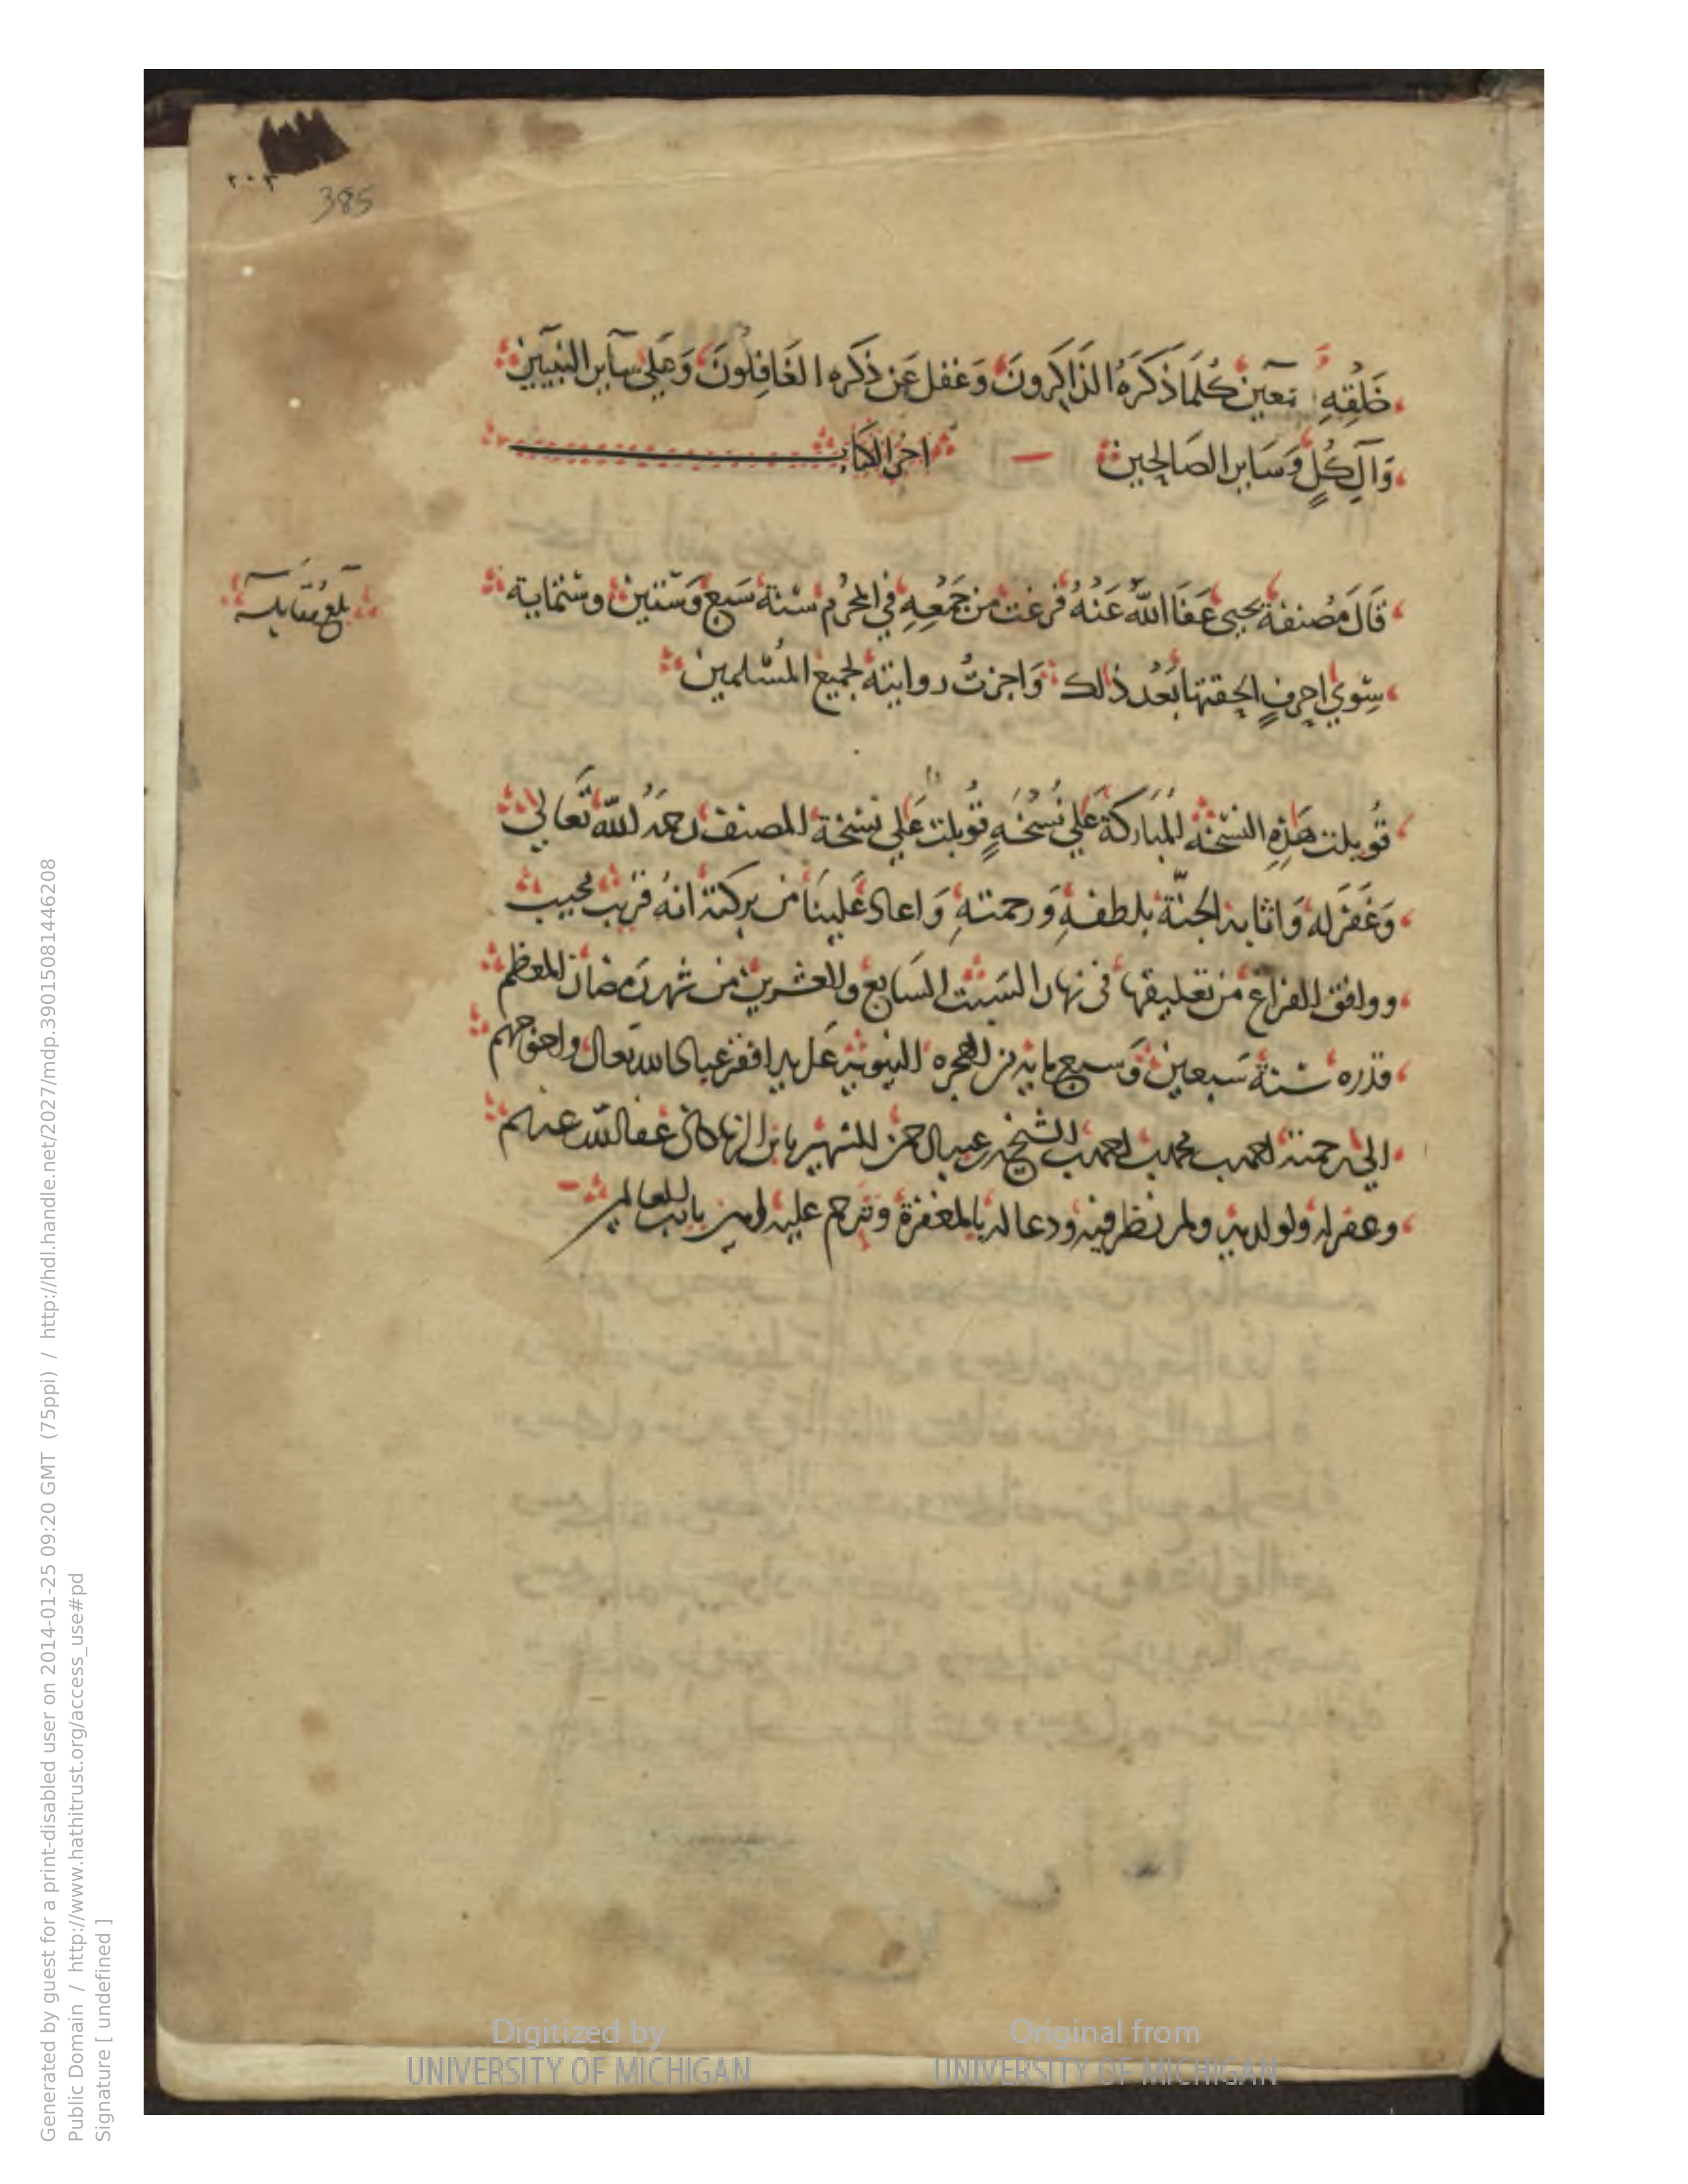 ٢٠٢
385
خَلْقِهِ ـمعين كُلَّمَا ذَكَرَهُ الذَّاكِرُونَ وَغفل عَن ذكره الغَافِلُونَ وَعَلى سآير النبيين
وَآلِ كُلٍ وَسَاير الصَالحين اخر الكتاب
قَالَ مُصنفهُ يحيى عَفَا اللهُ عَنْهُ فرغت من جَمْعِهِ في المحرم سنة سَبع وَستين وستماية
بلغ مقابلة
سِوي احرفٍ الحقتها بَعْد ذلك وَاجزتُ روايته لجميع المُسْلمين
قُوبلت هَذِهِ النسْخَة المباركة عَلي نُسْخَةٍ قوبلت عَلي نسْخة المصنف رحمَهُ الله تَعالي
وَغَفَر له وَاثابه الجنّة بلطفهِ وَرحمتهِ وَاعاد عَلينَا من بركته انهُ قريب مجيب
ووافق الفراغ من تعليقها في نهار السَبت السَابع والعشرين من شهر رَمضان المعظم
قدره سنة سَبعين وَسبع مايه من الهجره النبويه عَلى يد افقر عباد الله تعالى واحوجهم
الي رحمته احمد بن محمد بن احمد بن الشيخ عبد الرحمن الشهير بابن عفا الله عنهم
وغفر له ولوالديه ولمن نظر فيه ودعا له بالمغفرة وترحم عليه امين يا رب العالمين
Generated by guest for a print-disabled user on 2014-01-25 09:20 GMT (75ppi) / http://hdl.handle.net/2027/mdp.39015081446208
Public Domain / http://www.hathitrust.org/access_use#pd
Signature [ undefined ]
Digitized by
UNIVERSITY OF MICHIGAN
Original from
UNIVERSITY OF MICHIGAN